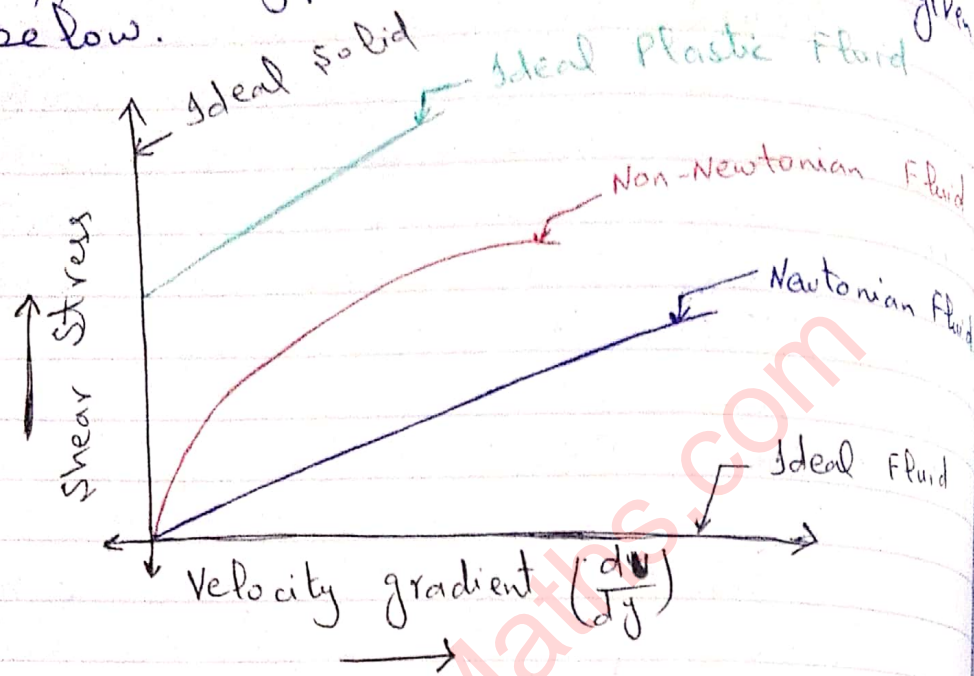 below.
given
Ideal Solid
Ideal Plastic Fluid
Non-Newtonian Fluid
Newtonian Fluid
Shear Stress
Ideal Fluid
Velocity gradient (du/dy)
Maths.com